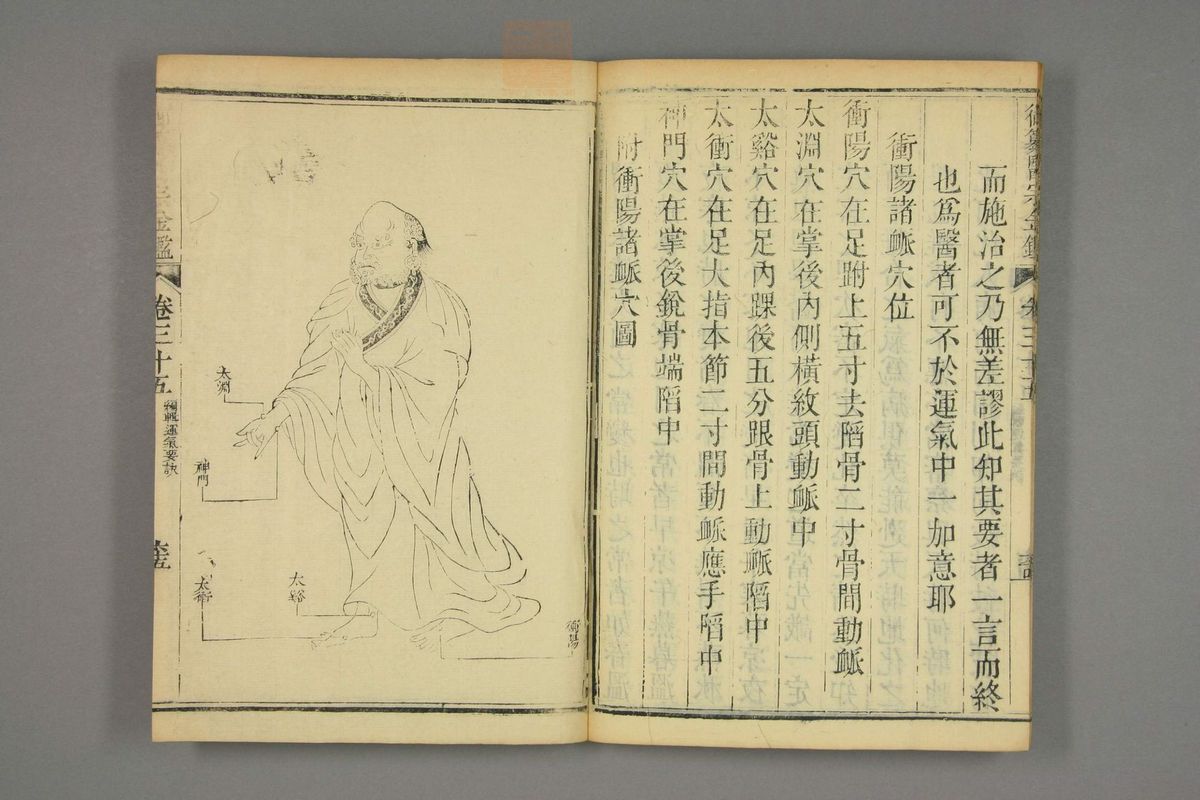 御纂醫宗金鑑
卷三十五
而施治之乃無差謬此知其要者一言而終
也爲醫者可不於運氣中一加意耶
衝陽諸䘑穴位
衝陽穴在足跗上五寸去陷骨二寸骨間動䘑
太淵穴在掌後內側橫紋頭動䘑中
太谿穴在足內踝後五分跟骨上動䘑陷中
太衝穴在足大指本節二寸間動䘑應手陷中
神門穴在掌後銳骨端陷中
附衝陽諸䘑穴圖
衝陽
太谿
太淵
神門
太衝
宗金鑑
卷三十五
編輯運氣要訣